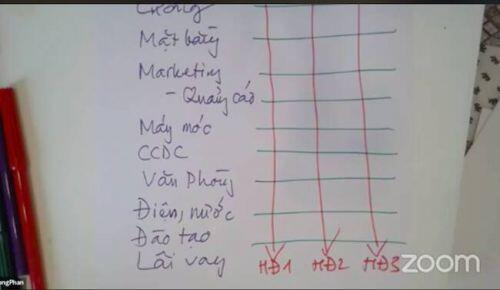 Mặt bằng
Marketing
- Quảng cáo
Máy móc
CCDC
Văn Phòng
Điện, nước
Đào tạo
Lãi vay HĐ1 HĐ2 HĐ3
zoom